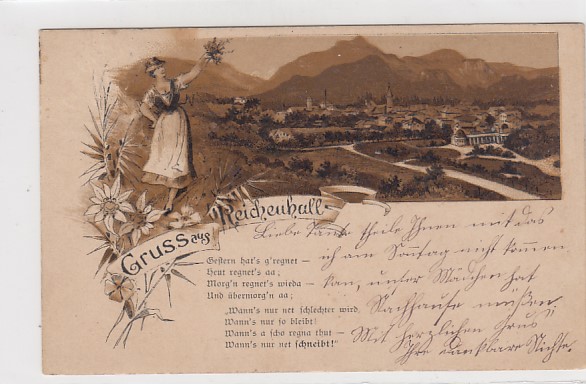 Gruss aus Reichenhall
Gestern hat's g'regnet –
Heut regnet's aa;
Morg'n regnet's wieda –
Und übermorg'n aa;
„Wann's nur net schlechter wird,
Wann's nur so bleibt!
Wann's a scho regna thut –
Wann's nur net schneibt!"
Liebe Tante theile Ihnen mit das
ich am Sonntag nicht kommen
kan, unter Mädchen hat
Nachhause müßen
Mit herzlichen Grus
Ihre dankbare Nichte.